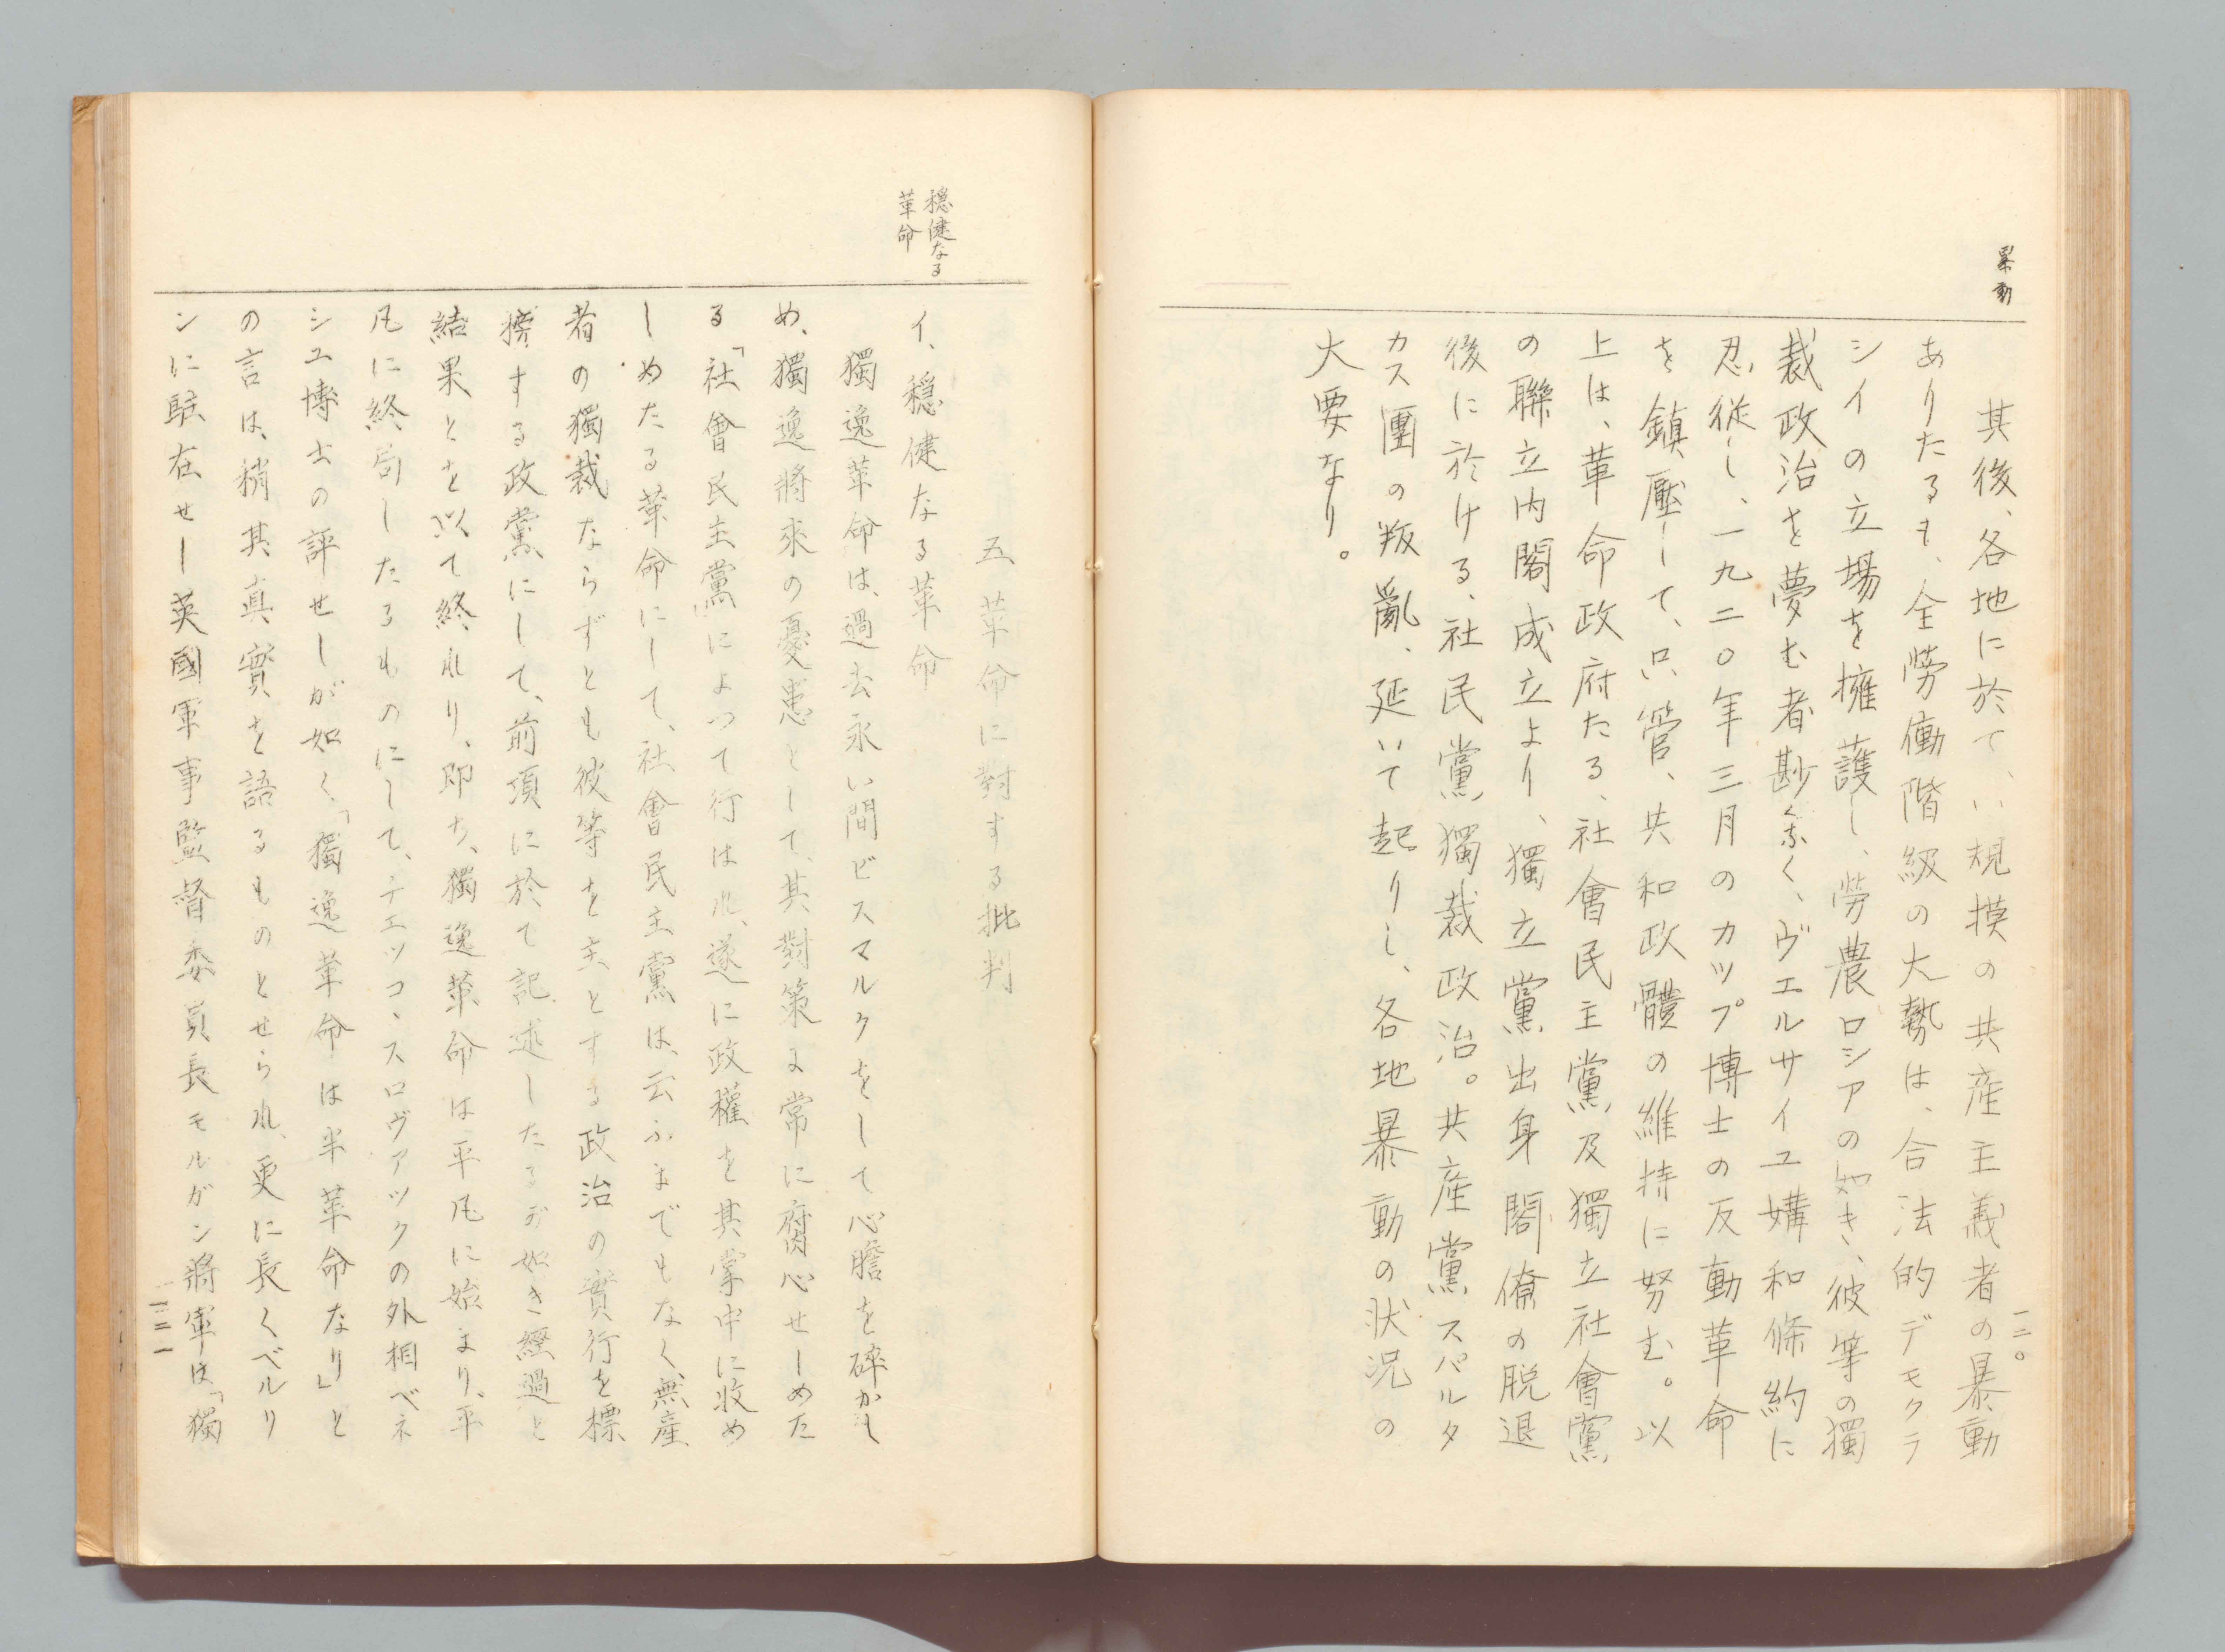 暴動
其後、各地に於て、い規摸の共産主義者の暴動
ありたるも、全勞働階級の大勢は、合法的デモクラ
シイの立場を擁護し、勞農ロシアの如き、彼等の獨
裁政治を夢む者尠くなく、ヴエルサイユ媾和條約に
忍從し、一九二〇年三月のカツプ博士の反動革命
を鎮壓して、只管、共和政體の維持に努む。以
上は、革命政府たる、社會民主黨及獨立社會黨
の聯立内閣成立より、獨立黨出身閣僚の脱退
後に於ける、社民黨獨裁政治。共産黨スパルタ
カス團の叛亂、延いて起りし、各地暴動の状況の
大要なり。
一二〇
穏健なる
革命
五 革命に對する批判
イ、穏健なる革命
獨逸革命は、過去永い間ビスマルクをして心膽を碎かし
め、獨逸將來の憂患として、其對策に常に腐心せしめた
る「社會民主黨」によつて行はれ、遂に政權を其掌中に收め
しめたる革命にして、社會民主黨は、云ふまでもなく、無産
者の獨裁ならずとも彼等を主とする政治の實行を標
榜する政黨にして、前項に於て記述したるが如き經過と
結果とを以て終れり、即ち、獨逸革命は平凡に始まり、平
凡に終局したるものにして、チエツコ、スロヴアツクの外相ベネ
シユ博士の評せしが如く、「獨逸革命は半革命なり」と
の言は、稍其真實を語るものとせられ、更に長くベルリ
ンに駐在せし英國軍事監督委員長モルガン將軍は、「獨
一二一